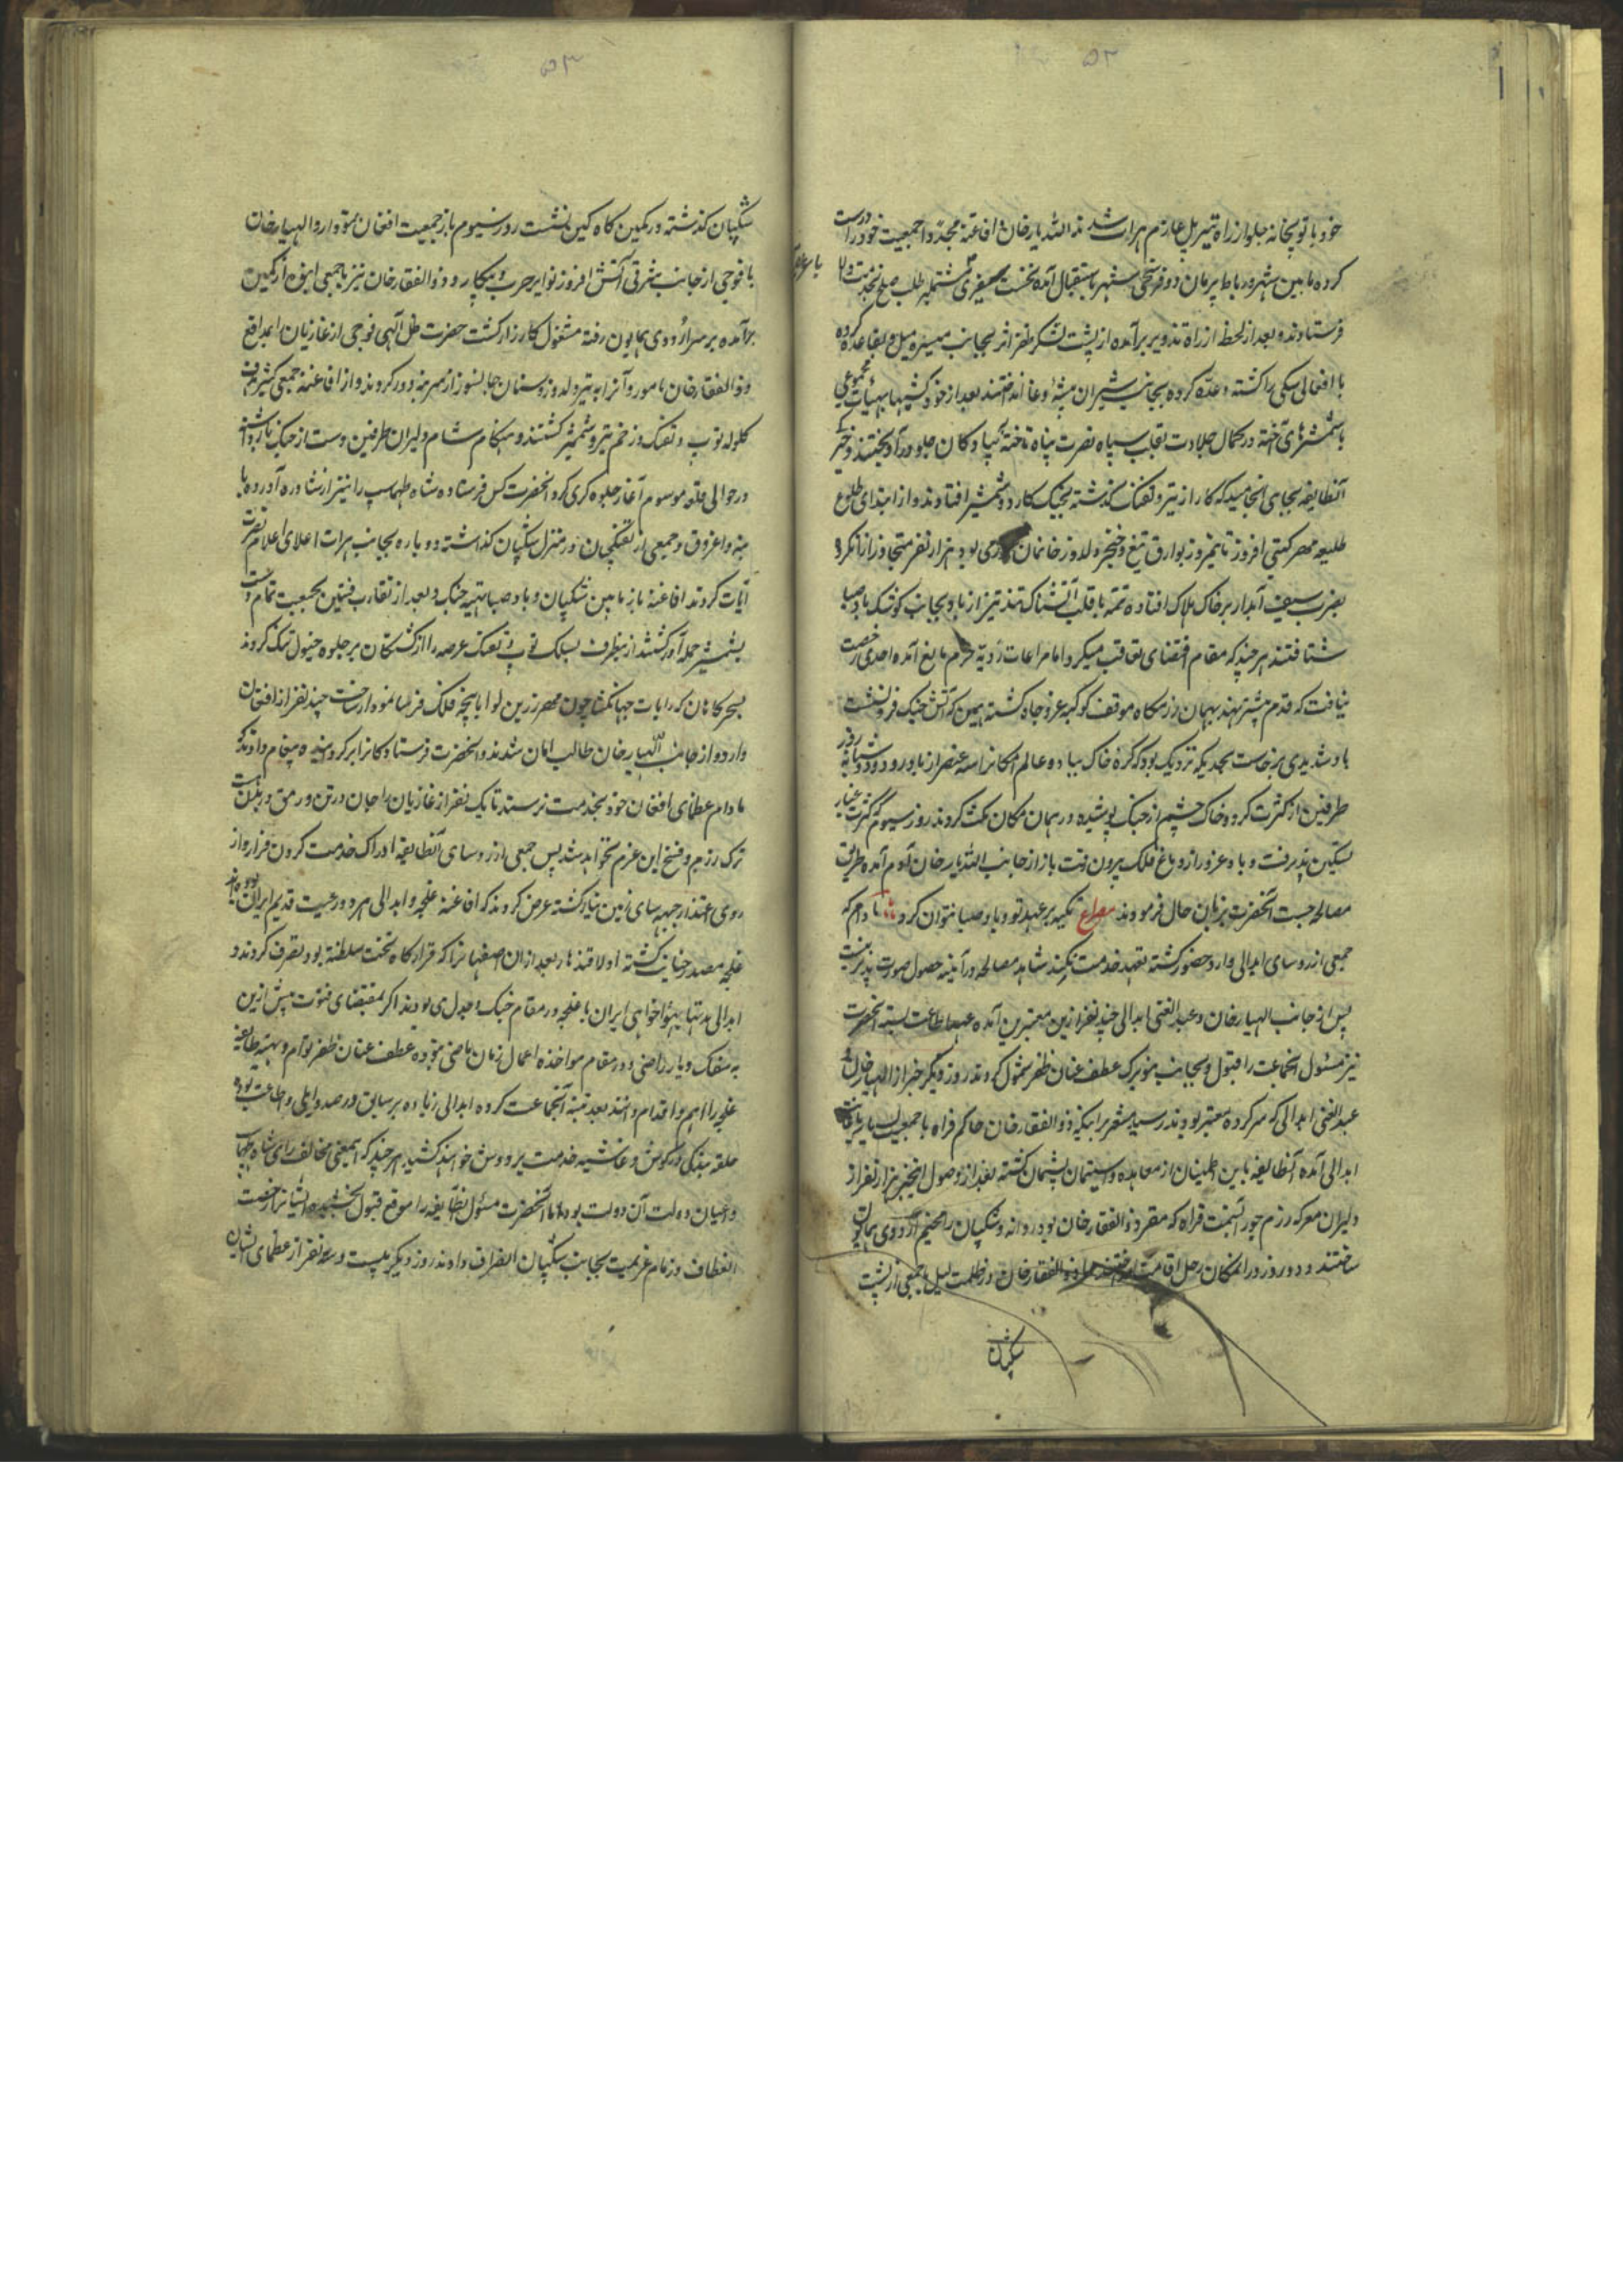 ۵۲
خود با توپخانه جلواز راه تیرپل عازم هرات شدند اللّه یار خان افاغنه مجدد جمعیت خود را درست
کرده مابین شهر و رباط پریان دو فرسخی شهر باستقبال آمده نخست سفیری مشتمل بر طلب صلح بخدمت والا
فرستادند و بعد از لحظه از راه تذویر برآمده از پشت لشکر ظفر اثر بجانب میسره میل و بقاعده کرده
با افغانی سکی را کشته و عده کرده بجانب شیران بیشهٔ وغا انداختند بعد از خود کشیها بهیأت مجموعی
با شمشیرهای آخته در کمال جلادت بقلب سپاه نصرت پناه تاخته و جلو درآویختند و خیر
آنطایفه بجایی انجامید که کار از تیر و تفنک گذشته بجنک کارد و شمشیر افتادند و از ابتدای طلوع
طلیعه مهر گیتی افروز تا نیمروز بوارق تیغ و خنجر دلدوز خانمان بود هزار نفر متجاوز از آنکروه
بضرب سیف آبدار بر خاک هلاک افتاده تتمه با قلب آتشناک تند تیز از باد بجانب کوشک باد صبا
شتافتند هر چند که مقام مقتضای تعاقب میکرد اما مراعات رویه حزم مانع آمده احدی رخصت
نیافت که قدم پیشتر نهند بهمان رزمگاه موقف کوکبه عز و جاه گشته همین که آتش جنک فرو نشست
باد شدیدی برخاست بحدیکه نزدیک بود که کرهٔ خاک بباد و عالم امکان را سه عنصر از پا درود دو شبانه روز
طرفین از کثرت گرد و خاک چشم از جنک پوشیده در همان مکان مکث کردند روز سیوم کثرت غبار
تسکین پذیرفت و باد غرور از دماغ فلک بیرون رفت باز از جانب اللّه یار خان آدم آمده طریق
مصالحه جست آنحضرت بزبان حال فرمودند مصراع تکیه بر عهد تو و باد صبا نتوان کرد تا دام که
جمعی از روسای ابدالی وارد حضور گشته تعهد خدمت نکنند شاهد مصالحه در آینه حصول صورت پذیر نیست
پس از جانب الهیار خان و عبد الغنی ابدالی چند نفر ازین معتبرین آمده عهد اطاعت بسته آنحضرت
نیز مسئول آنجماعت را قبول و بجانب منزل عطف عنان ظفر شمول کردند روز دیگر خبر از الهیار خان و
عبد الغنی ابدالی که سرکرده معتبر بودند رسید مشعر بر اینکه ذو الفقار خان حاکم فراه با جمعیت
ابدالی آمده آنطایفه باین اطمینان از معاهده و استیمان پشیمان گشته بعد از وصول اینخبر هزار نفر از
دلیران معرکه رزم جو را بسمت فراه که مقر ذو الفقار خان بود روانه و شکیبان را مخیم اردوی همایون
ساختند و دو روز در آنمکان رحل اقامت انداختند ذو الفقار خان در ظلمت لیل با جمعی از پشت
شکیبان
۵۳
شکیبان گذشته در کمین گاه کین نشست روز سیوم باز جمعیت افغان نمودار و الهیار خان
با فوجی از جانب شرقی آتش افروز نوایر حرب و پیکار و ذو الفقار خان نیز با جمعی انبوه از کمین
برآمده بر سر اردوی همایون رفته مشغول کارزار گشت حضرت ظل الهی فوجی از غازیان را بمدافع
ذو الفقار خان مامور و آنرا به تیر دلدوز و سنان جانسوز از سر بنه دور کردند و از افاغنه جمعی کثیر
گلوله توپ و تفنک و زخم تیر و شمشیر گشتند و هنگام شام دلیران طرفین دست از جنک بازداشته
در حوالی قلعه موسوم آغاز جلوه گری کرد آنحضرت کس فرستاده شاه طهماسب را نیز از نشاوره آورده با
بنه و اغروق و جمعی از تفنکچیان در منزل شکیبان گذاشته دوباره بجانب هرات اعلای اعلام نصرت
آیات کردند افاغنه باز مابین شکیبان و باد صبا تهیه جنک و بعد از تقارب فئتین بجمعیت تمام دست
بشمشیر حمله آور گشتند ازینطرف بشلک توپ و تفنک عرصه را از کشتگان بر جلوه خیول تنک کردند
سحرگاهان که رایات جهانگشا چون مهر زرین لوا پنجه فلک فرسا نمودار ساخت چند نفر از افغان
وارد و از جانب اللّهیار خان طالب امان شدند و آنحضرت فرستادگان را برگردانیده پیغام دادند که
مادام عظمای افغان خود بخدمت نرسند تا یک نفر از غازیان را جان در تن و رمق در بدنست
ترک رزم و فسخ این عزم نخواهد شد پس جمعی از روسای آنطایفه ادراک خدمت کردن قرار داده از
روی اعتذار جبهه سای زمین نیاز گشته عرض کردند که افاغنه غلجه و ابدالی هر دو رعیت قدیم ایران بوده اند
غلجه مصدر خیانت گشته اولا قندهار بعد از آن اصفهانرا که قرارگاه تخت سلطنت بود تصرف کردند و
ابدالی مدتها بهواخواهی ایران با غلجه در مقام جنک و جدل می بودند اگر بمقتضای فتوت پیش ازین
به سفک دما راضی و در مقام مواخذه اعمال زمان ماضی نبوده عطف عنان ظفر توام و تنبیه طایفه
غلجه را اهم و اقدام دانند بعد تنبیه آنجماعت گروه ابدالی زیاده بر سابق در صدد ایلی و اطاعت بوده
حلقه بندگی در گوش و غاشیه خدمت بر دوش خواهند کشید هر چند که اینمعنی مخالف رای شاه طهماسب
و اعیان دولت آن دولت بود اما آنحضرت مسئول آنطایفه را موقع قبول بخشیده ایشانرا رخصت
انعطاف و زمام عزیمت بجانب شکیبان انصراف دادند روز دیگر بیست و سه نفر از عظمای ایشان